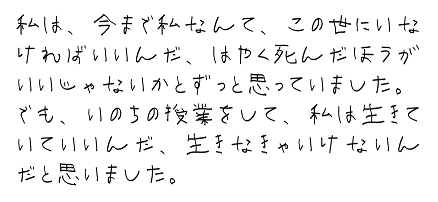 私は、今まで私なんて、この世にいな
ければいいんだ、はやく死んだほうが
いいじゃないかとずっと思っていました。
でも、いのちの授業をして、私は生きて
いていいんだ、生きなきゃいけないん
だと思いました。